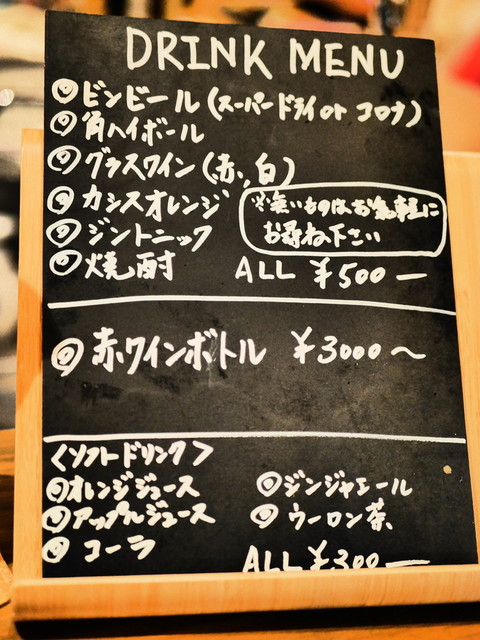 DRINK MENU
◎ビンビール(スーパードライor コロナ)
◎角ハイボール
◎グラスワイン(赤,白)
◎カシスオレンジ
※無いものはお気軽に
お尋ね下さい
◎ジントニック
◎焼酎 ALL ¥500ー
◎赤ワインボトル ¥3000〜
<ソフトドリンク>
◎オレンジジュース ◎ジンジャエール
◎アップルジュース ◎ウーロン茶
◎コーラ
ALL ¥300ー